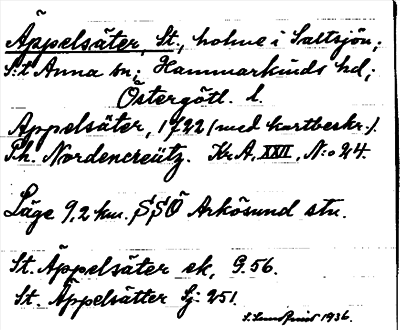 Äppelsäter, St., holme i Saltsjön;
S:t Anna sn; Hammarkinds hd;
Östergötl. l.
Appelsäter, 1722 (med kartbeskr.).
Ph. Nordencreütz. Kr.A. XXII, N:o 24.
Läge 9,2 km. SSÖ Arkösund stn.
St. Äppelsäter ek, G.56.
St. Äppelsätter Sj: 251.
S. Lundqvist 1936.